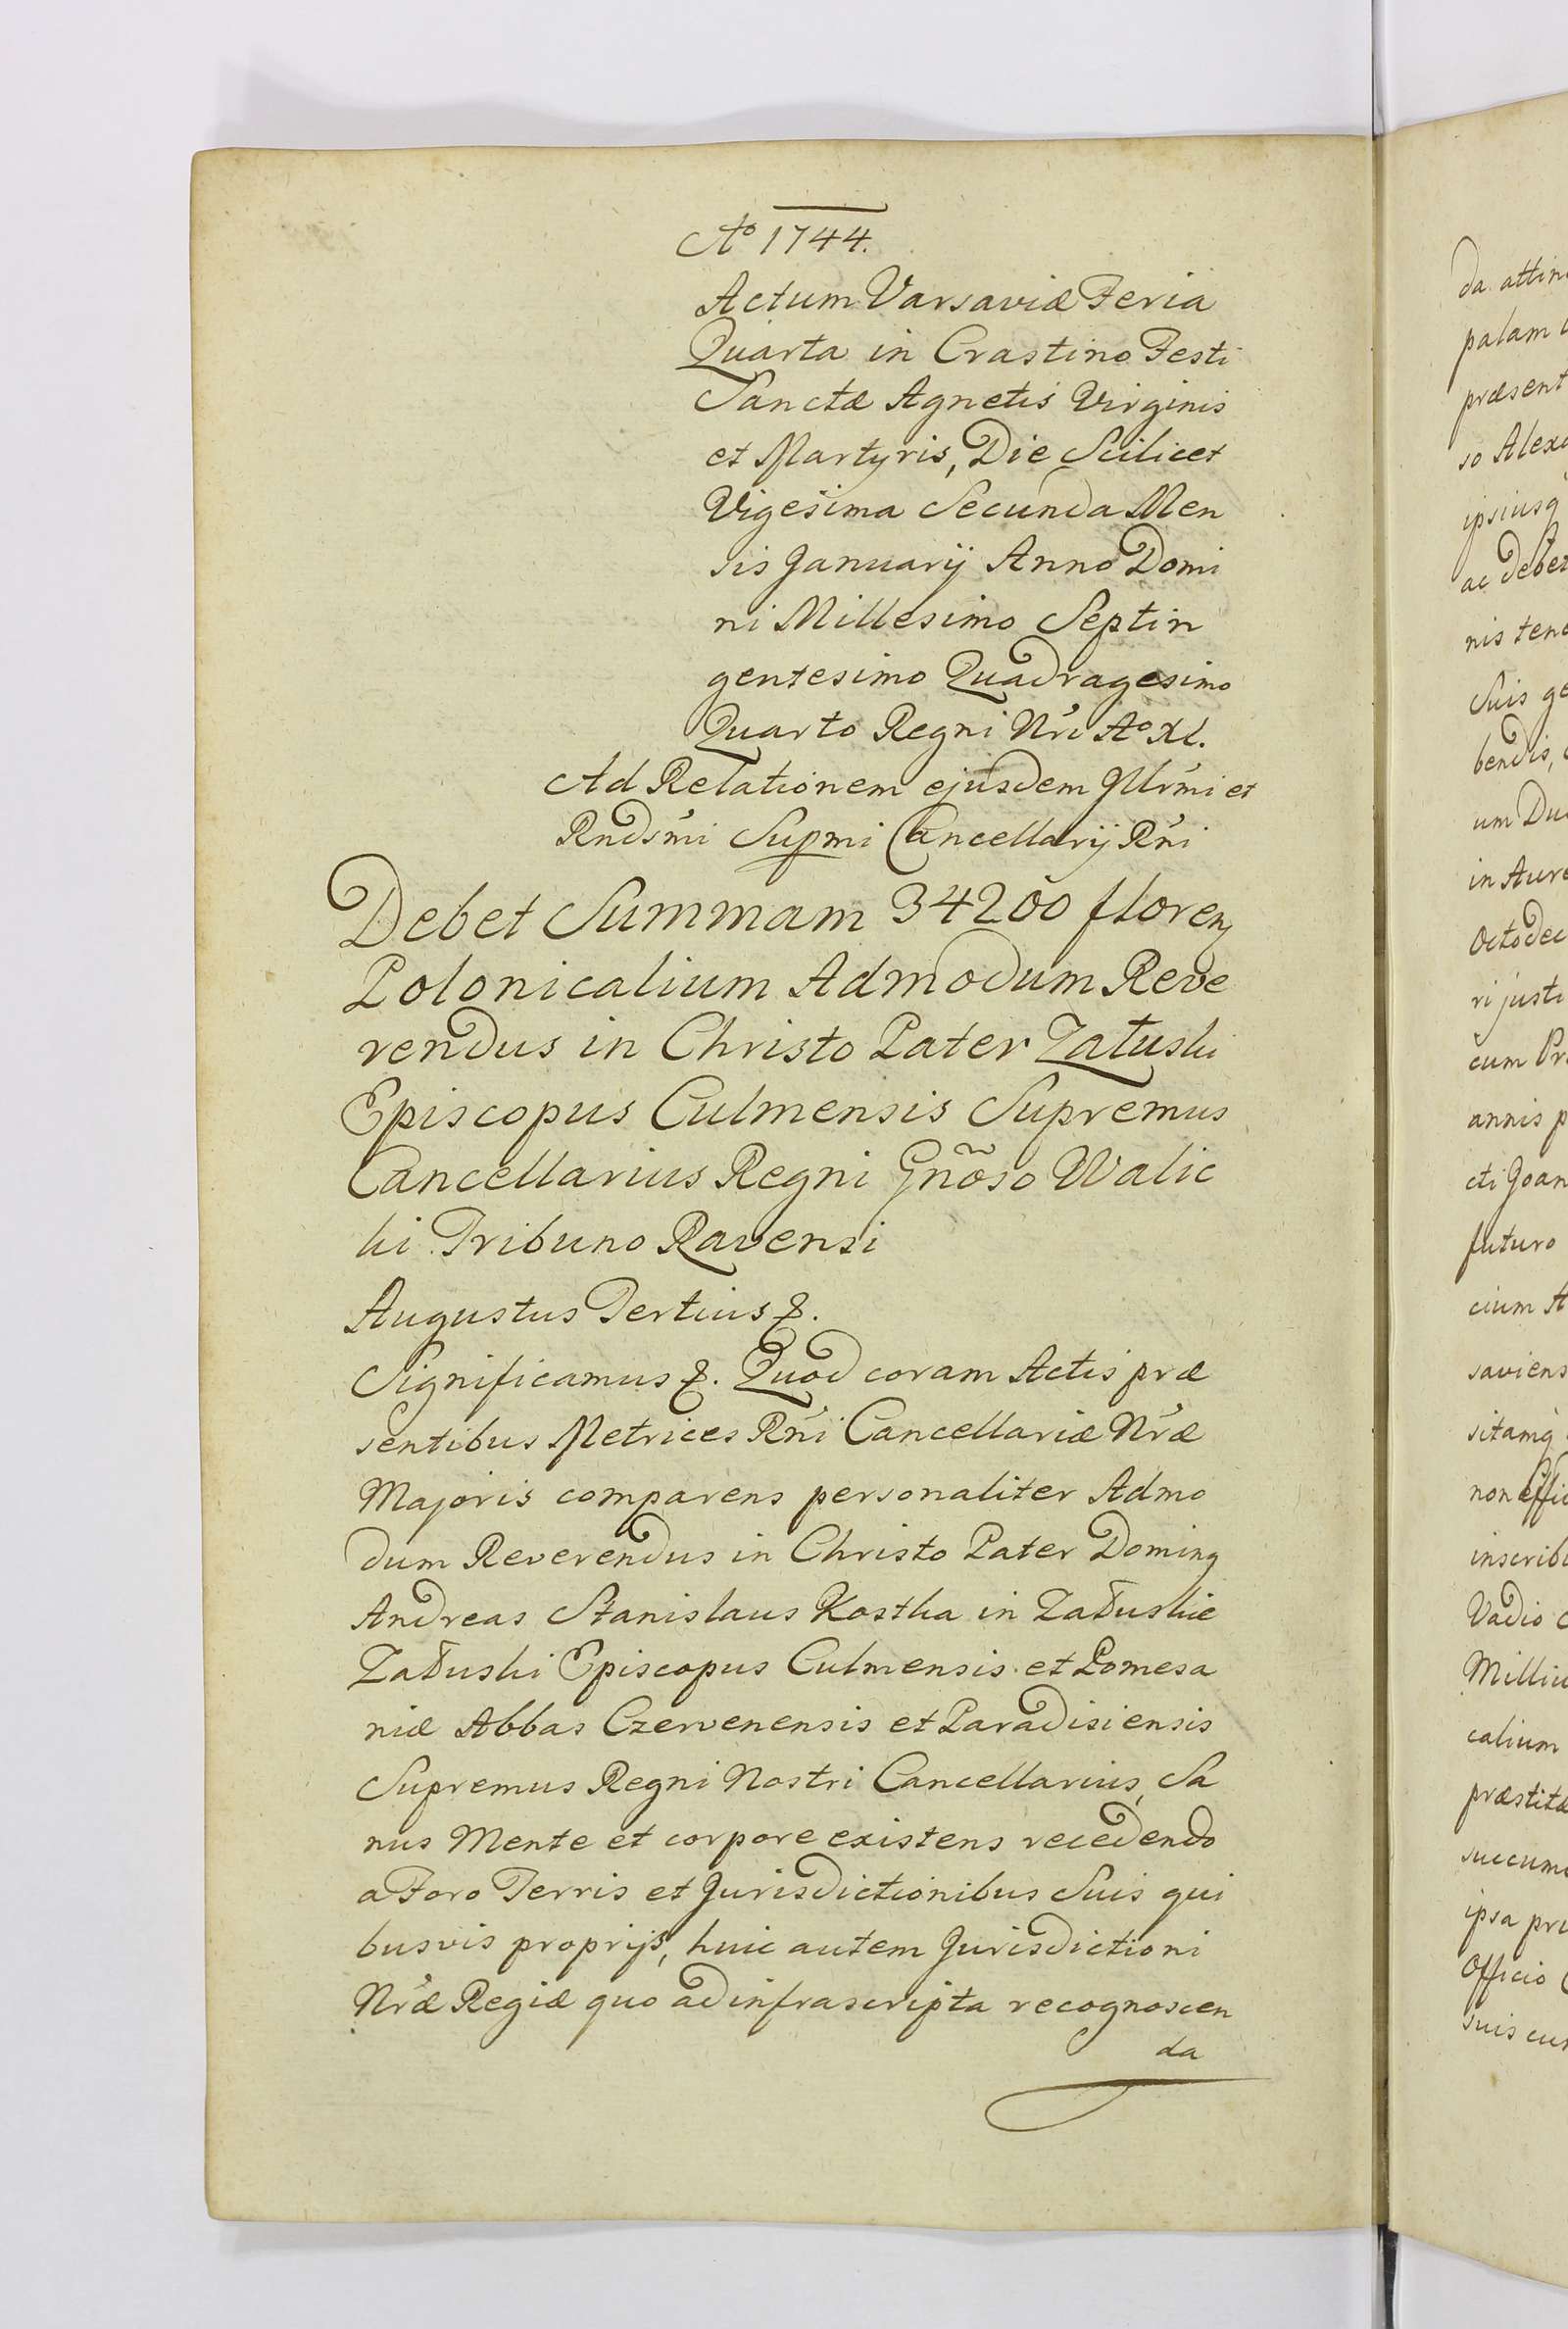 Aº 1744.
Actum Varsaviæ Feria
Quarta in Crastino Festi
Sanctæ Agnetis Virginis
et Martyris, Die Scilicet
Vigesima Secunda Men
sis Januarij Anno Domi
ni Millesimo Septin
gentesimo Quadragesimo
Quarto Regni Nri Aº XI.
Ad Relationem ejusdem Illrmi et
Rndsmi Supmi Cancellarij Rni
Debet Summam 34200 floren
Polonicalium Admodum Reve
rendus in Christo Pater Załuski
Episcopus Culmensis Supremus
Cancellarius Regni Gnoso Walic
ki Tribuno Ravensi
Augustus Tertius &.
Significamus &. Quod coram Actis præ
sentibus Metrices Rni Cancellariæ Nræ
Majoris comparens personaliter Admo
dum Reverendus in Christo Pater Dominq
Andreas Stanislaus Kostka in Załuskie
Załuski Episcopus Culmensis et Pomesa
niæ Abbas Czervenensis et Paradisiensis
Supremus Regni Nostri Cancellarius, Sa
nus Mente et corpore existens recedendo
a Foro Terris et Jurisdictionibus Suis qui
busvis proprijs, huic autem Jurisdictioni
Nræ Regiæ quo ad infrascripta recognoscen
da
da
palam
præsent
so
ipsiusq
ac
nis
Suis
bendis,
um
in
ri
cum
annis
cti
futuro
cium
sitamq
non
Vadio
calium
ipsa
Officio
suis